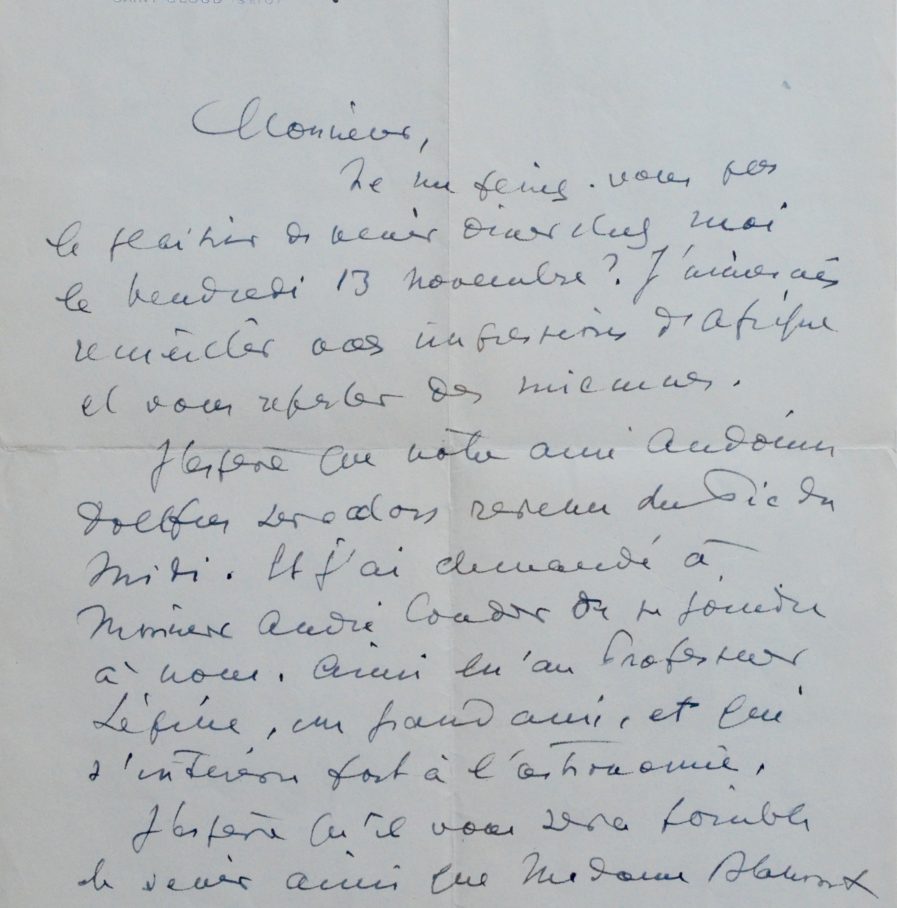 SAINT-CLOUD
Monsieur,
Ne me feriez-vous pas
le plaisir de venir dîner chez moi
le vendredi 13 novembre? J'aimerais
vos impressions d'Afrique
et vous des miennes.
J'espère que notre ami Audouin
Dollfus sera alors revenu du Pic du
Midi. Et j'ai demandé à
Monsieur André Couder de se joindre
à nous. Ainsi qu'au Professeur
Lépine, un grand ami, et qui
s'intéresse fort à l'astronomie.
J'espère qu'il vous sera possible
de venir ainsi que Madame